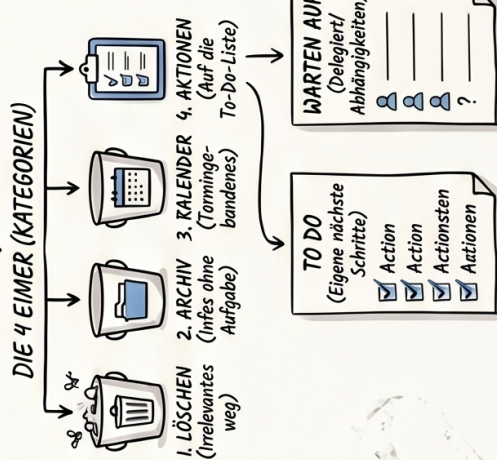 DIE 4 EIMER (KATEGORIEN)
1. LÖSCHEN
(Irrelevantes
weg)
2. ARCHIV
(Infes ohne
Aufgabe)
3. RALENDER
(Tarminge-
bandenes)
4. AKTIONEN
(Auf die
To-Do-Liste)
TO DO
(Eigene nächste
Schritte)
Action
Action
Actionsten
Aationen
WARTEN AUF
(Delegiert/
Abhängigkeiten)
?